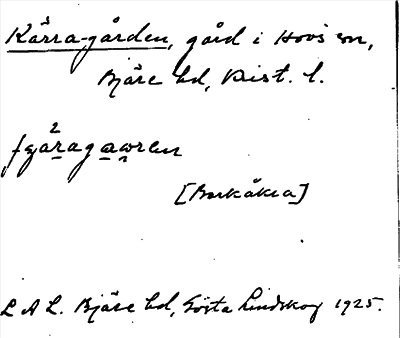 Kärra-gården, gård i Hovs sn,
Bjäre hd, Krist. l.
[Barkåkra]
L A L. Bjäre hd, Gösta Lindskog 1925.